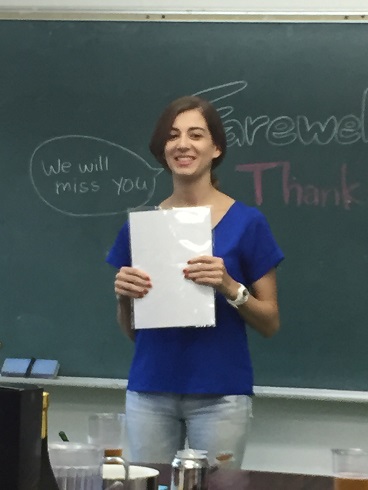 Farewel
We will
miss you
Thank